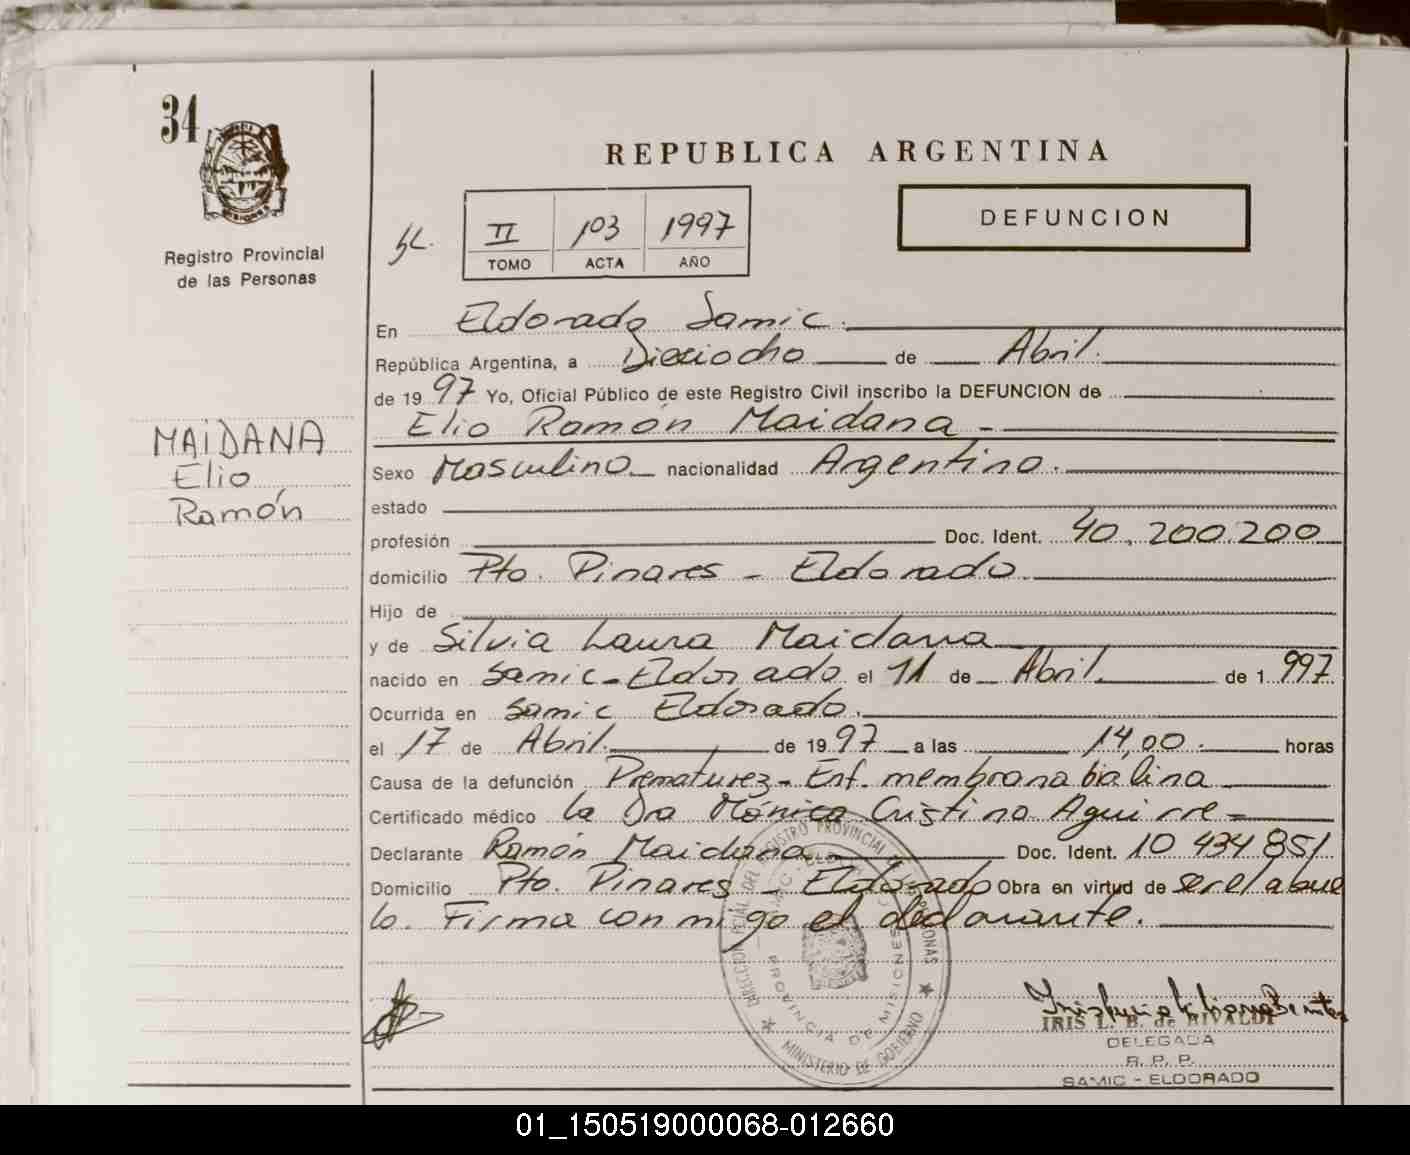 34
REPUBLICA ARGENTINA
DEFUNCION
II 103 1997
TOMO ACTA AÑO
Registro Provincial
de las Personas
En Eldorado Samic.
República Argentina, a Dieciocho de Abril.
de 19 97 Yo, Oficial Público de este Registro Civil inscribo la DEFUNCION de
Elio Ramón Maidana -
MAiDANA
Elio
Ramón
Sexo Masculino nacionalidad Argentino.
estado
profesión Doc. Ident. 40.200.200
domicilio Pto. Pinares - Eldorado
Hijo de
y de Silvia Laura Maidana
nacido en Samic-Eldorado el 11 de Abril. de 1 997
Ocurrida en Samic Eldorado.
el 17 de Abril. de 19 97 a las 14,00. horas
Causa de la defunción Prematurez- Enf. membrana bialina
Certificado médico la Dra Mónica Cristina Aguirre -
Declarante Ramón Maidana Doc. Ident. 10 434 851
Domicilio Pto. Pinares - Eldorado Obra en virtud de ser el abue
lo. Firma conmigo el declarante.
DIRECCION REGISTRO PROVINCIAL PERSONAS
PROVINCIA DE MISIONES
MINISTERIO DE GOBIERNO
IRIS L. B. de RIVALDI
DELEGADA
R. P. P.
SAMIC - ELDORADO
01_150519000068-012660